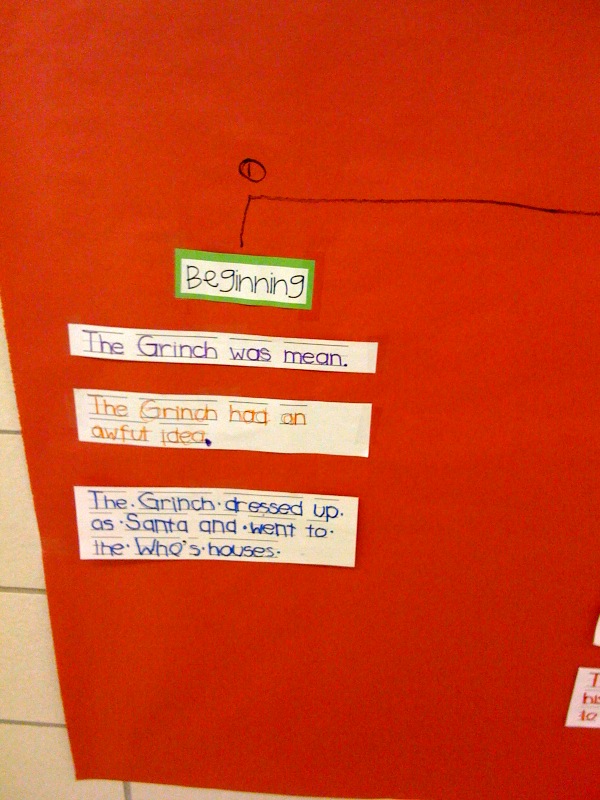 1
Beginning
The Grinch was mean.
The Grinch had an
awful idea.
The.Grinch.dressed up.
as.Santa and.went to.
the.Who's.houses.
to